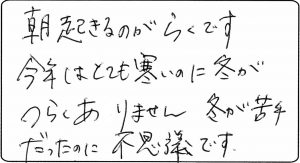 朝起きるのがらくです
今年はとても寒いのに冬が
つらくありません 冬が苦手
だったのに不思議です.